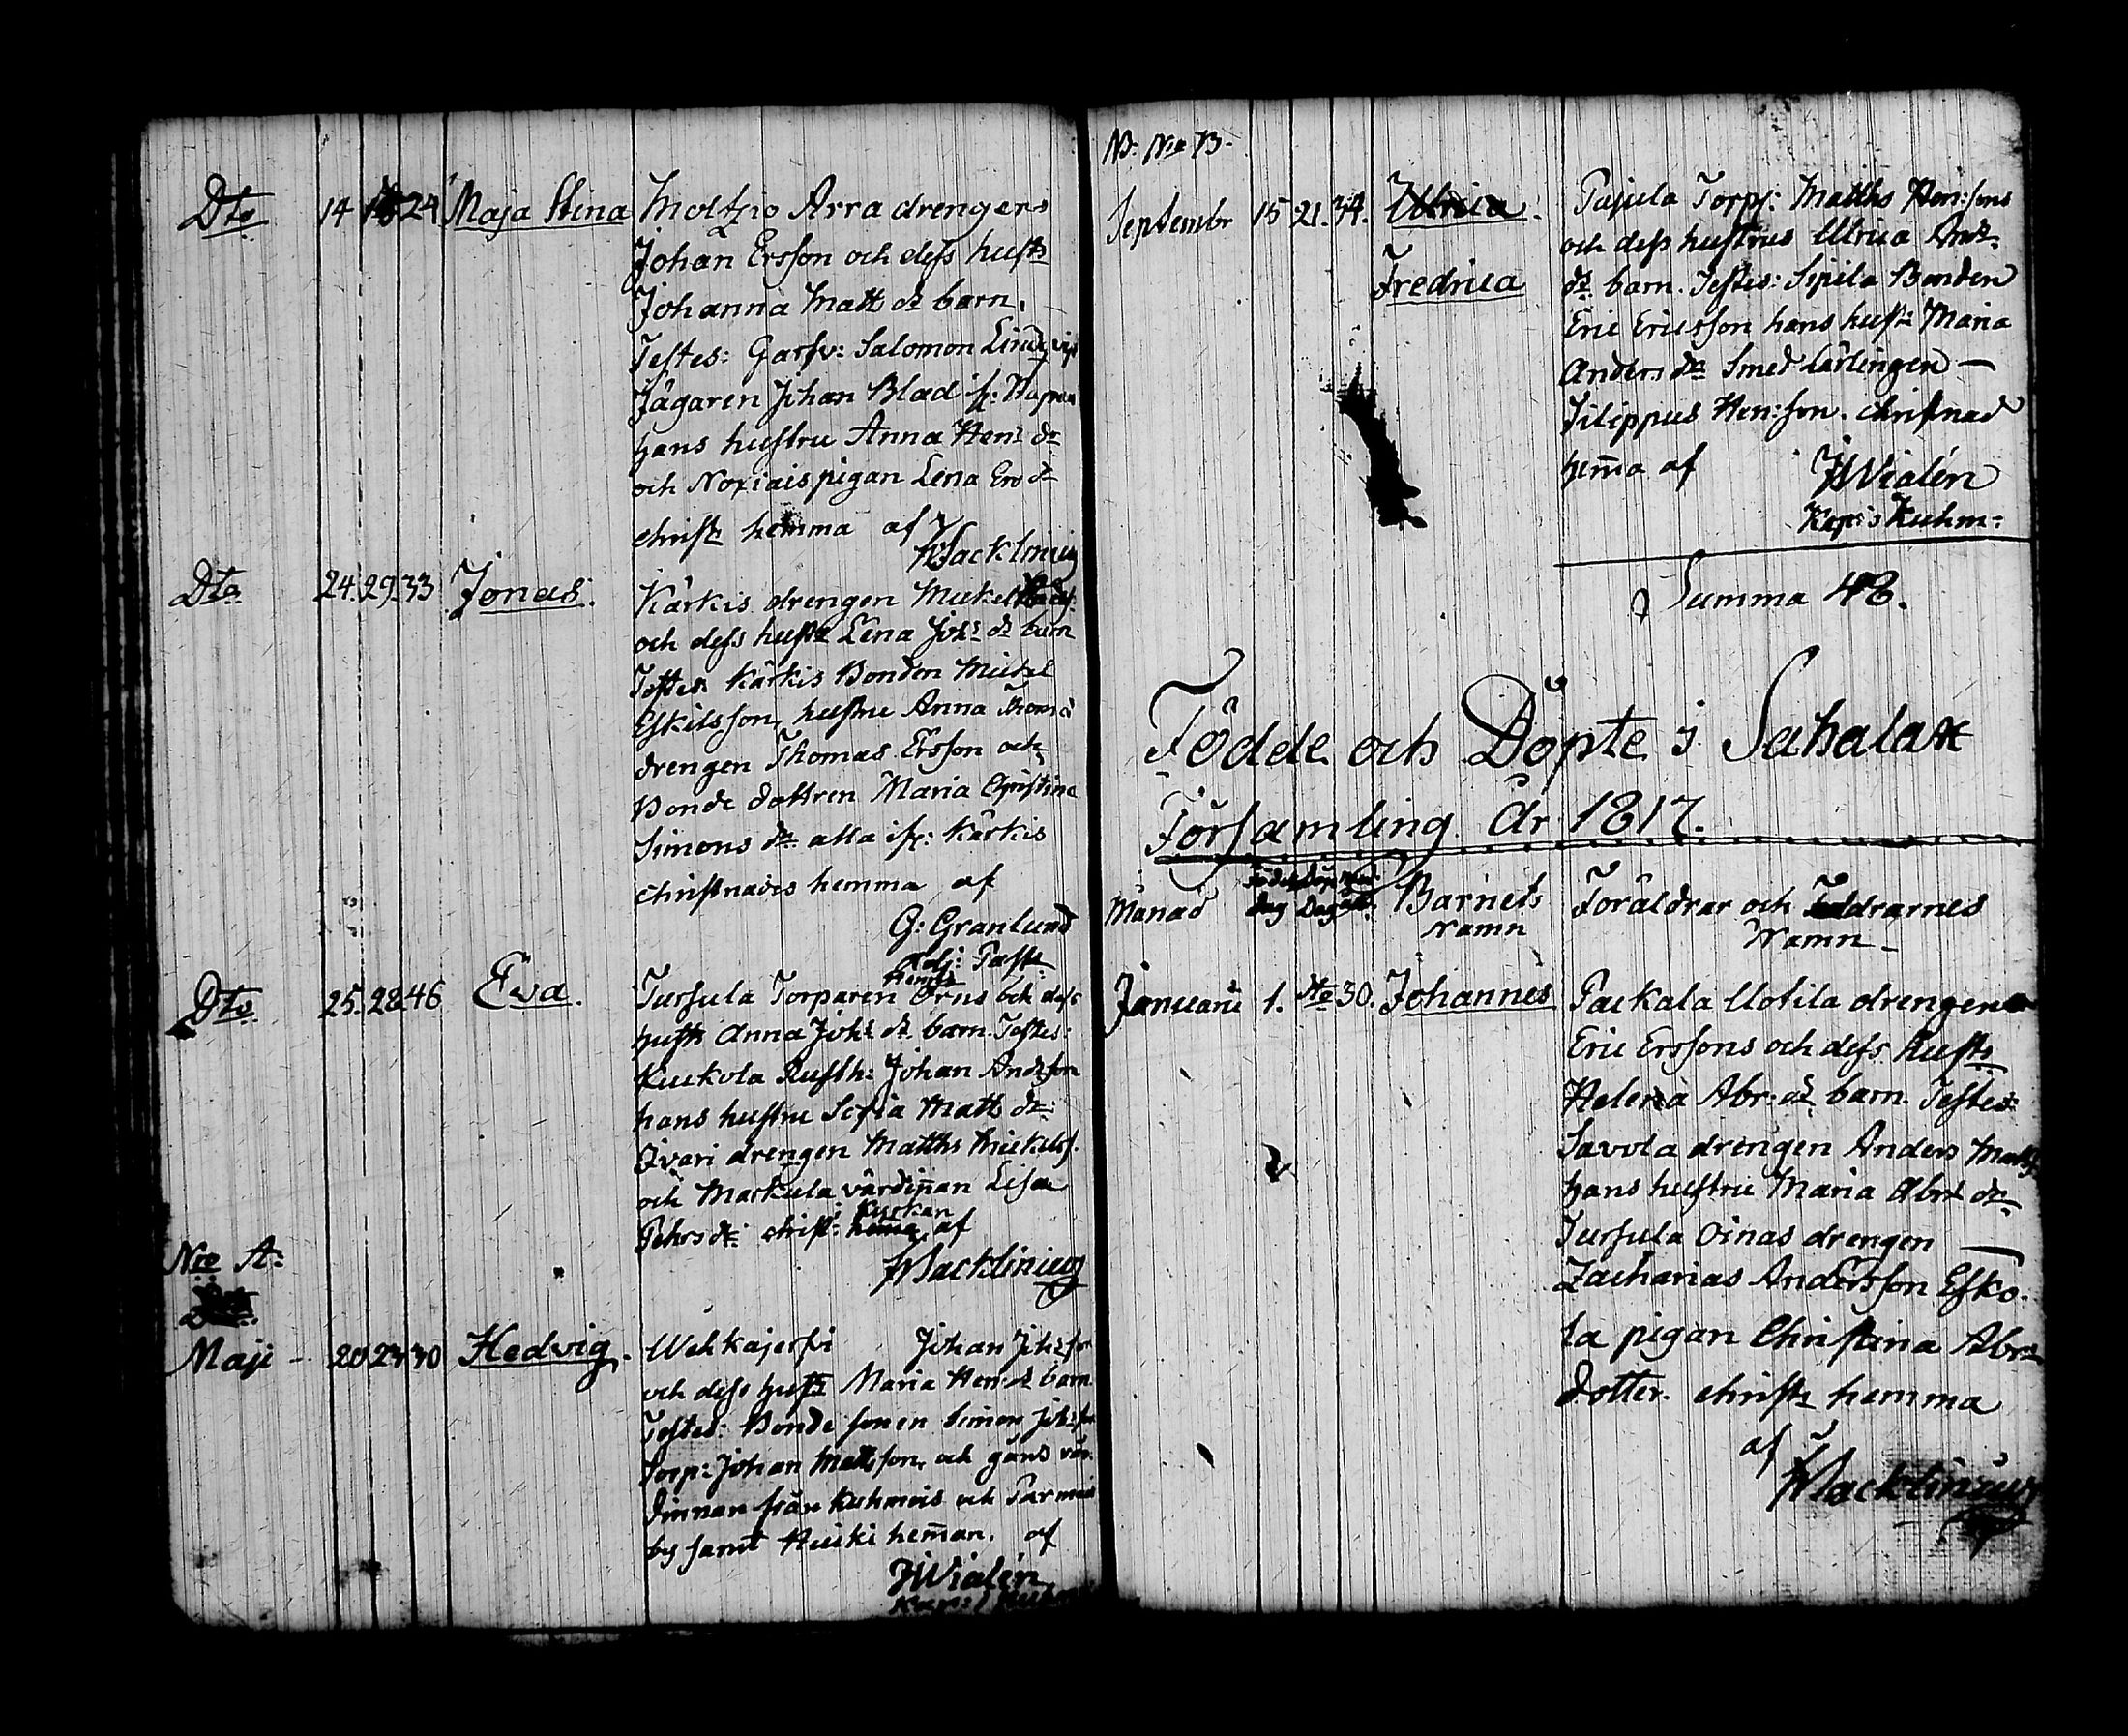 Dto 14 24 Maja Stina Moltzio Arra drengens
Johan Ersson och dess hust:
Johanna Matts dr barn.
Testes: Garfv: Salomon Lindqvist
Jägaren Johan Blad
hans hustru Anna Hen: dr
och Noxiais pigan Lena Ers dr
christ: hemma af
Wacklinius
Dto 24. 29. 33 Jonas. Kärkis drengen Mickel
och dess hust: Lena Joh: dr barn
Testes: Kärkis Bonden Mickel
Eskilsson, hustru Anna Thom:
drengen Thomas Ersson och
Bonde dottren Maria Christina
Simons dr. alla ifr: Kärkis
christnades hemma af
G: Granlund
Adj: Past:
Dto 25. 28. 46 Eva. Tursula Torparen Henric Örns och dess
hust: Anna Joh: dr. barn. Testes:
Kuckola Rusth: Johan Andsson
hans hustru Sofia Matts dr:
Qvari drengen Matths Mickelss.
och Markula värdinnan Lisa
Pehrs dr: christ: i kyrkan af
Wacklinius
Nro A:
Maji 20 23 30 Hedvig. Wehkajerfvi Johan Joh:son
och dess hust: Maria Hen: dr barn
Testes: Bonde sonen Simon Joh:son
Torp: Johan Mattsson, och gårds vär-
dinnan från Kuhmois och Parmais
by samt Huiki heman. af
JWialén
Kap: i Kuhm:
N: Nro B.
Septembr 15 21. 34. Ulrica. Pajula Torp: Matths Hen:sons
och dess hustrus Ulrica And:
Fredrica dr. barn. Testes: Sipilä Bonden
Eric Ericsson hans hust: Maria
Anders dr. Smed lärlingen —
Filippus Hen:son. christnad
hema af JWialén
Kap: i Kuhm:
Summa 48.
Födde och Döpte i Sahalax
Församling År 1817.
Månad Födelse Döpelse
dag Dag Barnets Föräldrar och Faddrarnes
Namn Namn
Januarii 1. dto 30. Johannes Packala Uotila drengen
Eric Erssons och dess hust:
Helena Abr: dr. barn. Testes:
Savola drengen Anders Matts
hans hustru Maria Abr: dr.
Tursula Oinas drengen —
Zacharias Andersson Esko-
la pigan Christina Abr:
dotter. christ: hemma
af
Wacklinius